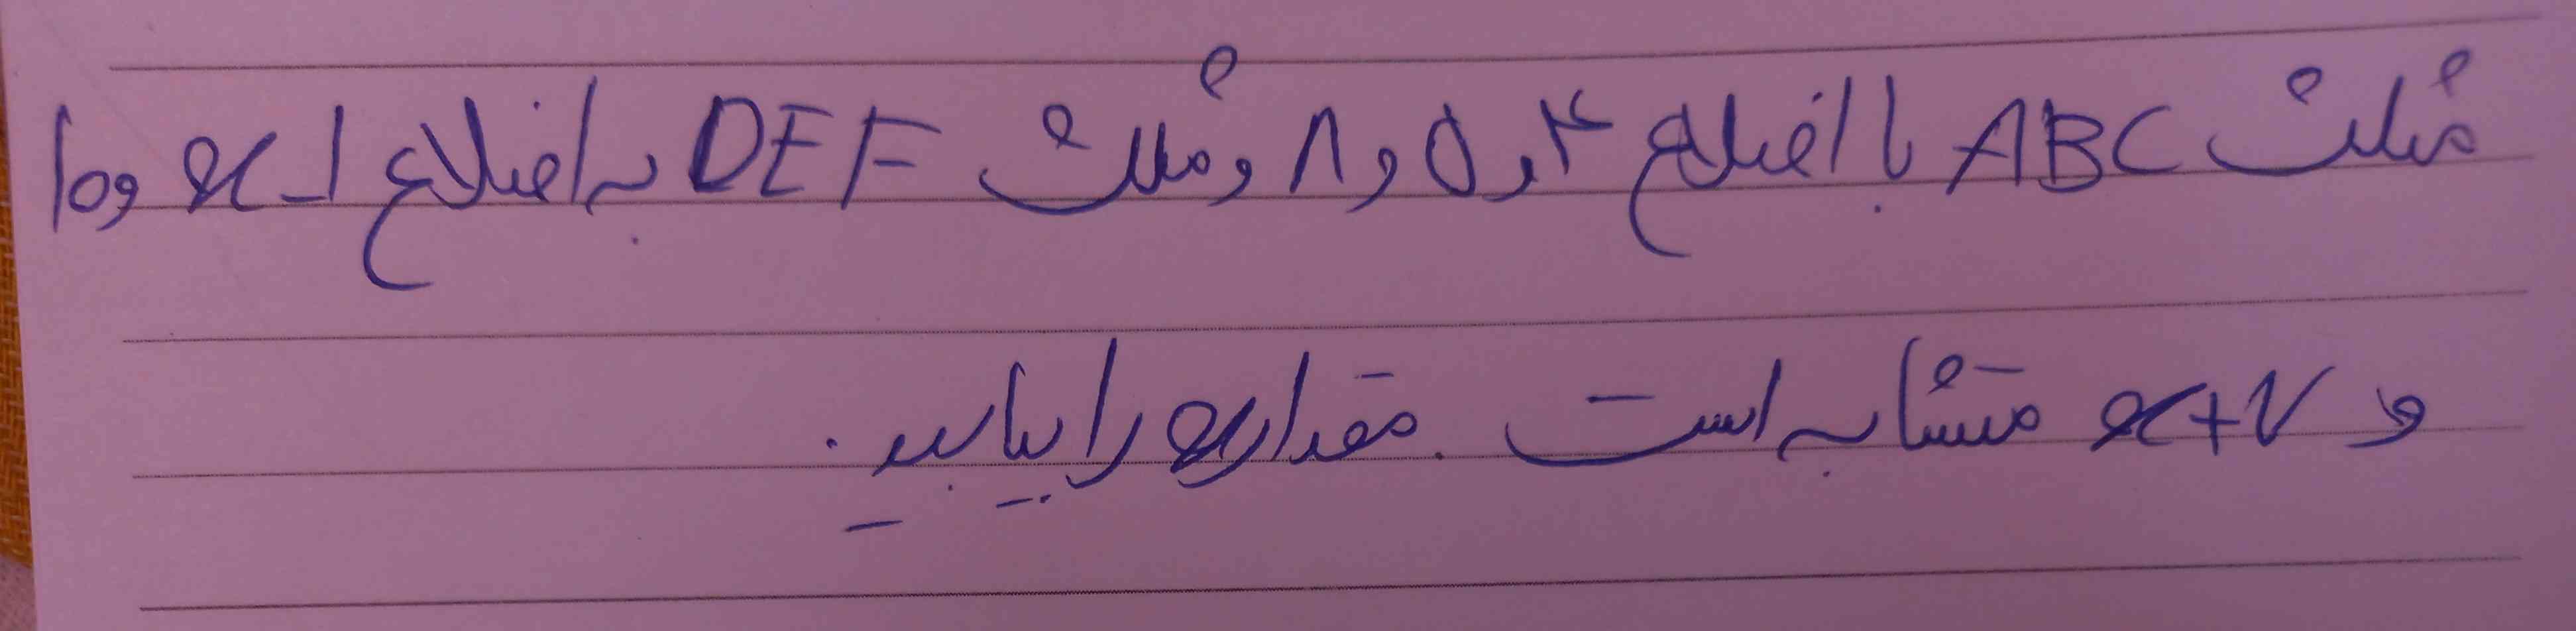 مثلث ABC با اضلاع ۴ و ۵ و ۸ و مثلث DEF به اضلاع x-1 و ۱۵
و x+۷ متشابه است . مقدار x را بیابید .